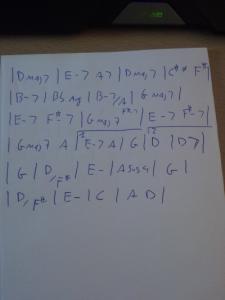 | Dmaj7 | E-7 A7 | Dmaj7 | C#ø F# |
| B-7 | | B-7/A | Gmaj7 |
| E-7 F#-7 | Gmaj7 F#-7 | E-7 F#-7 |
| Gmaj7 A | 1 E-7 A | G | 2 D | D7 |
| G | D/F# | E- | Asus4 | G |
| D/F# | E- | C | A D |